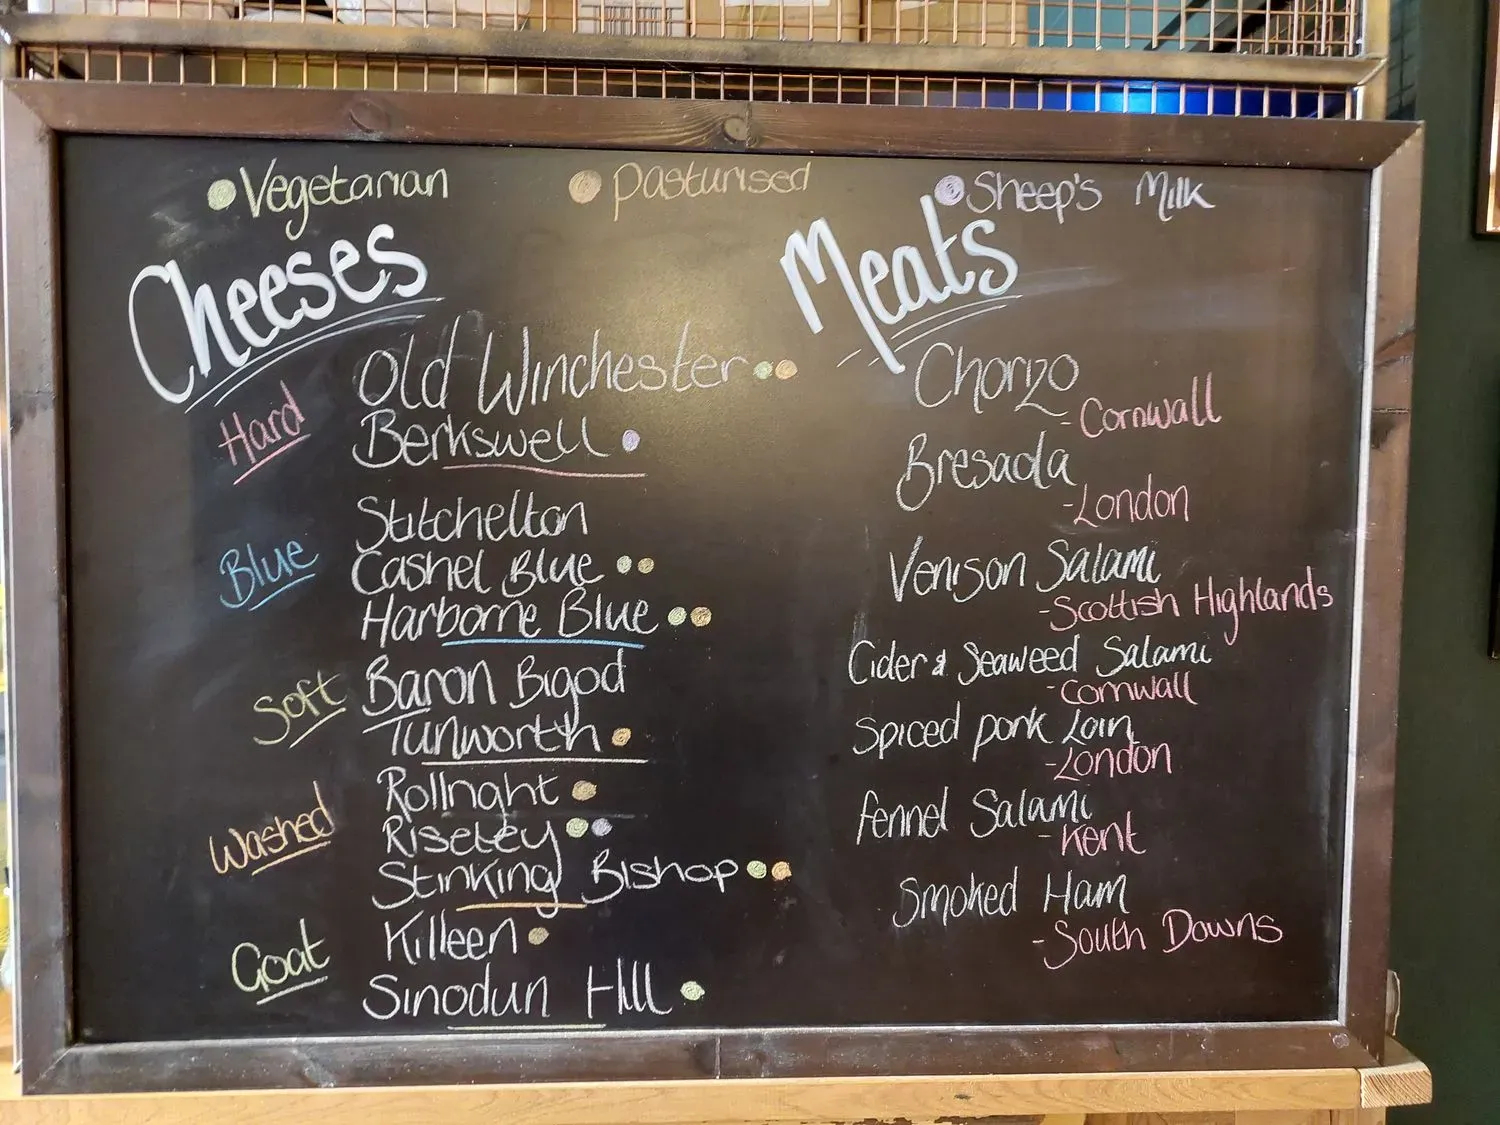 Vegetarian
Pasturised
Sheep's Milk
Cheeses
Hard
Old Winchester
Berkswell
Blue
Stitchelton
Cashel Blue
Harborne Blue
Soft
Baron Bigod
Tunworth
Washed
Rollright
Riseley
Stinking Bishop
Goat
Killeen
Sinodun Hill
Meats
Chorizo
- Cornwall
Bresaola
- London
Venison Salami
- Scottish Highlands
Cider & Seaweed Salami
- Cornwall
Spiced pork Loin
- London
Fennel Salami
- Kent
Smoked Ham
- South Downs